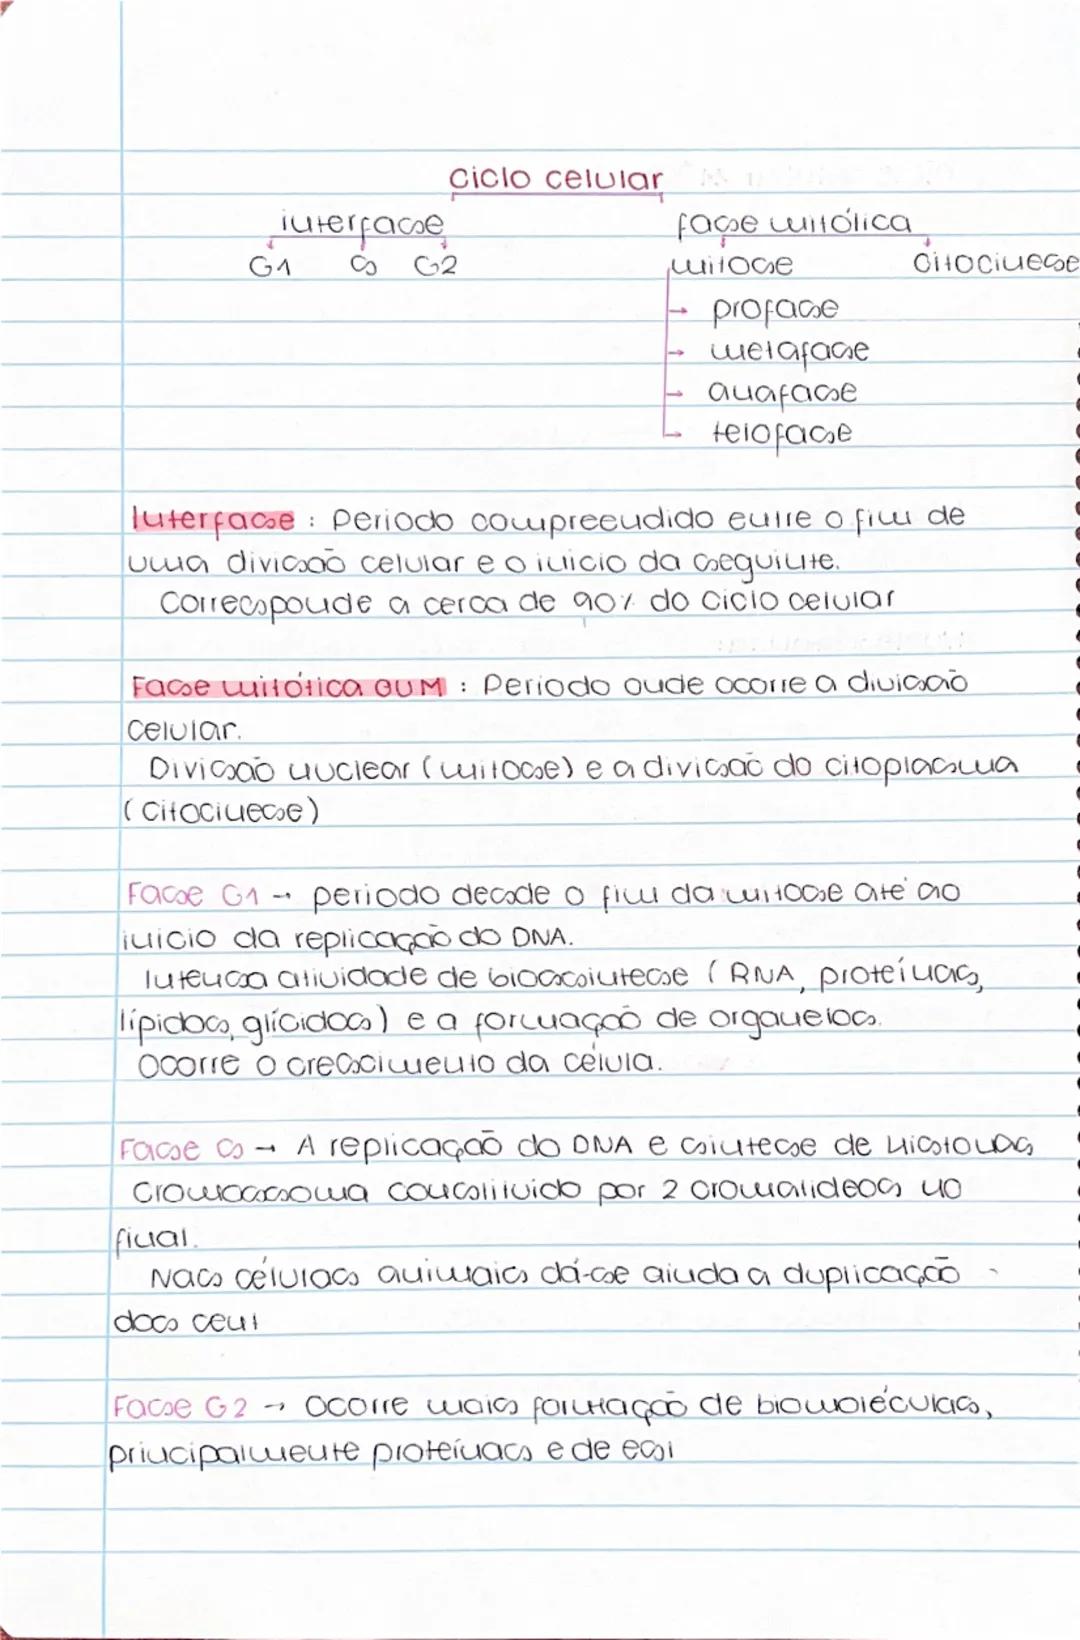 Ciclo celular
interfase fase mitótica
G1 S G2 mitose Citocinese
→ profase
→ metafase
→ anafase
→ telofase
Interfase : Periodo compreendido entre o fim de
uma divisão celular e o inicio da seguinte.
Corresponde a cerca de 90% do Ciclo celular
Fase mitótica OU M : Periodo onde ocorre a divisão
Celular.
Divisão nuclear (mitose) e a divisão do citoplasma
(Citocinese)
Fase G1 → periodo desde o fim da mitose até ao
inicio da replicação do DNA.
Intensa atividade de biossintese ( RNA, proteínas,
lípidos, glícidos) e a formação de organelos.
Ocorre o crescimento da célula.
Fase S → A replicação do DNA e sintese de histonas
Cromossoma constituido por 2 cromatideos no
final.
Nas células animais dá-se ainda a duplicação
dos cent
Fase G2 → Ocorre mais formação de biomoléculas,
principalmente proteínas e de est